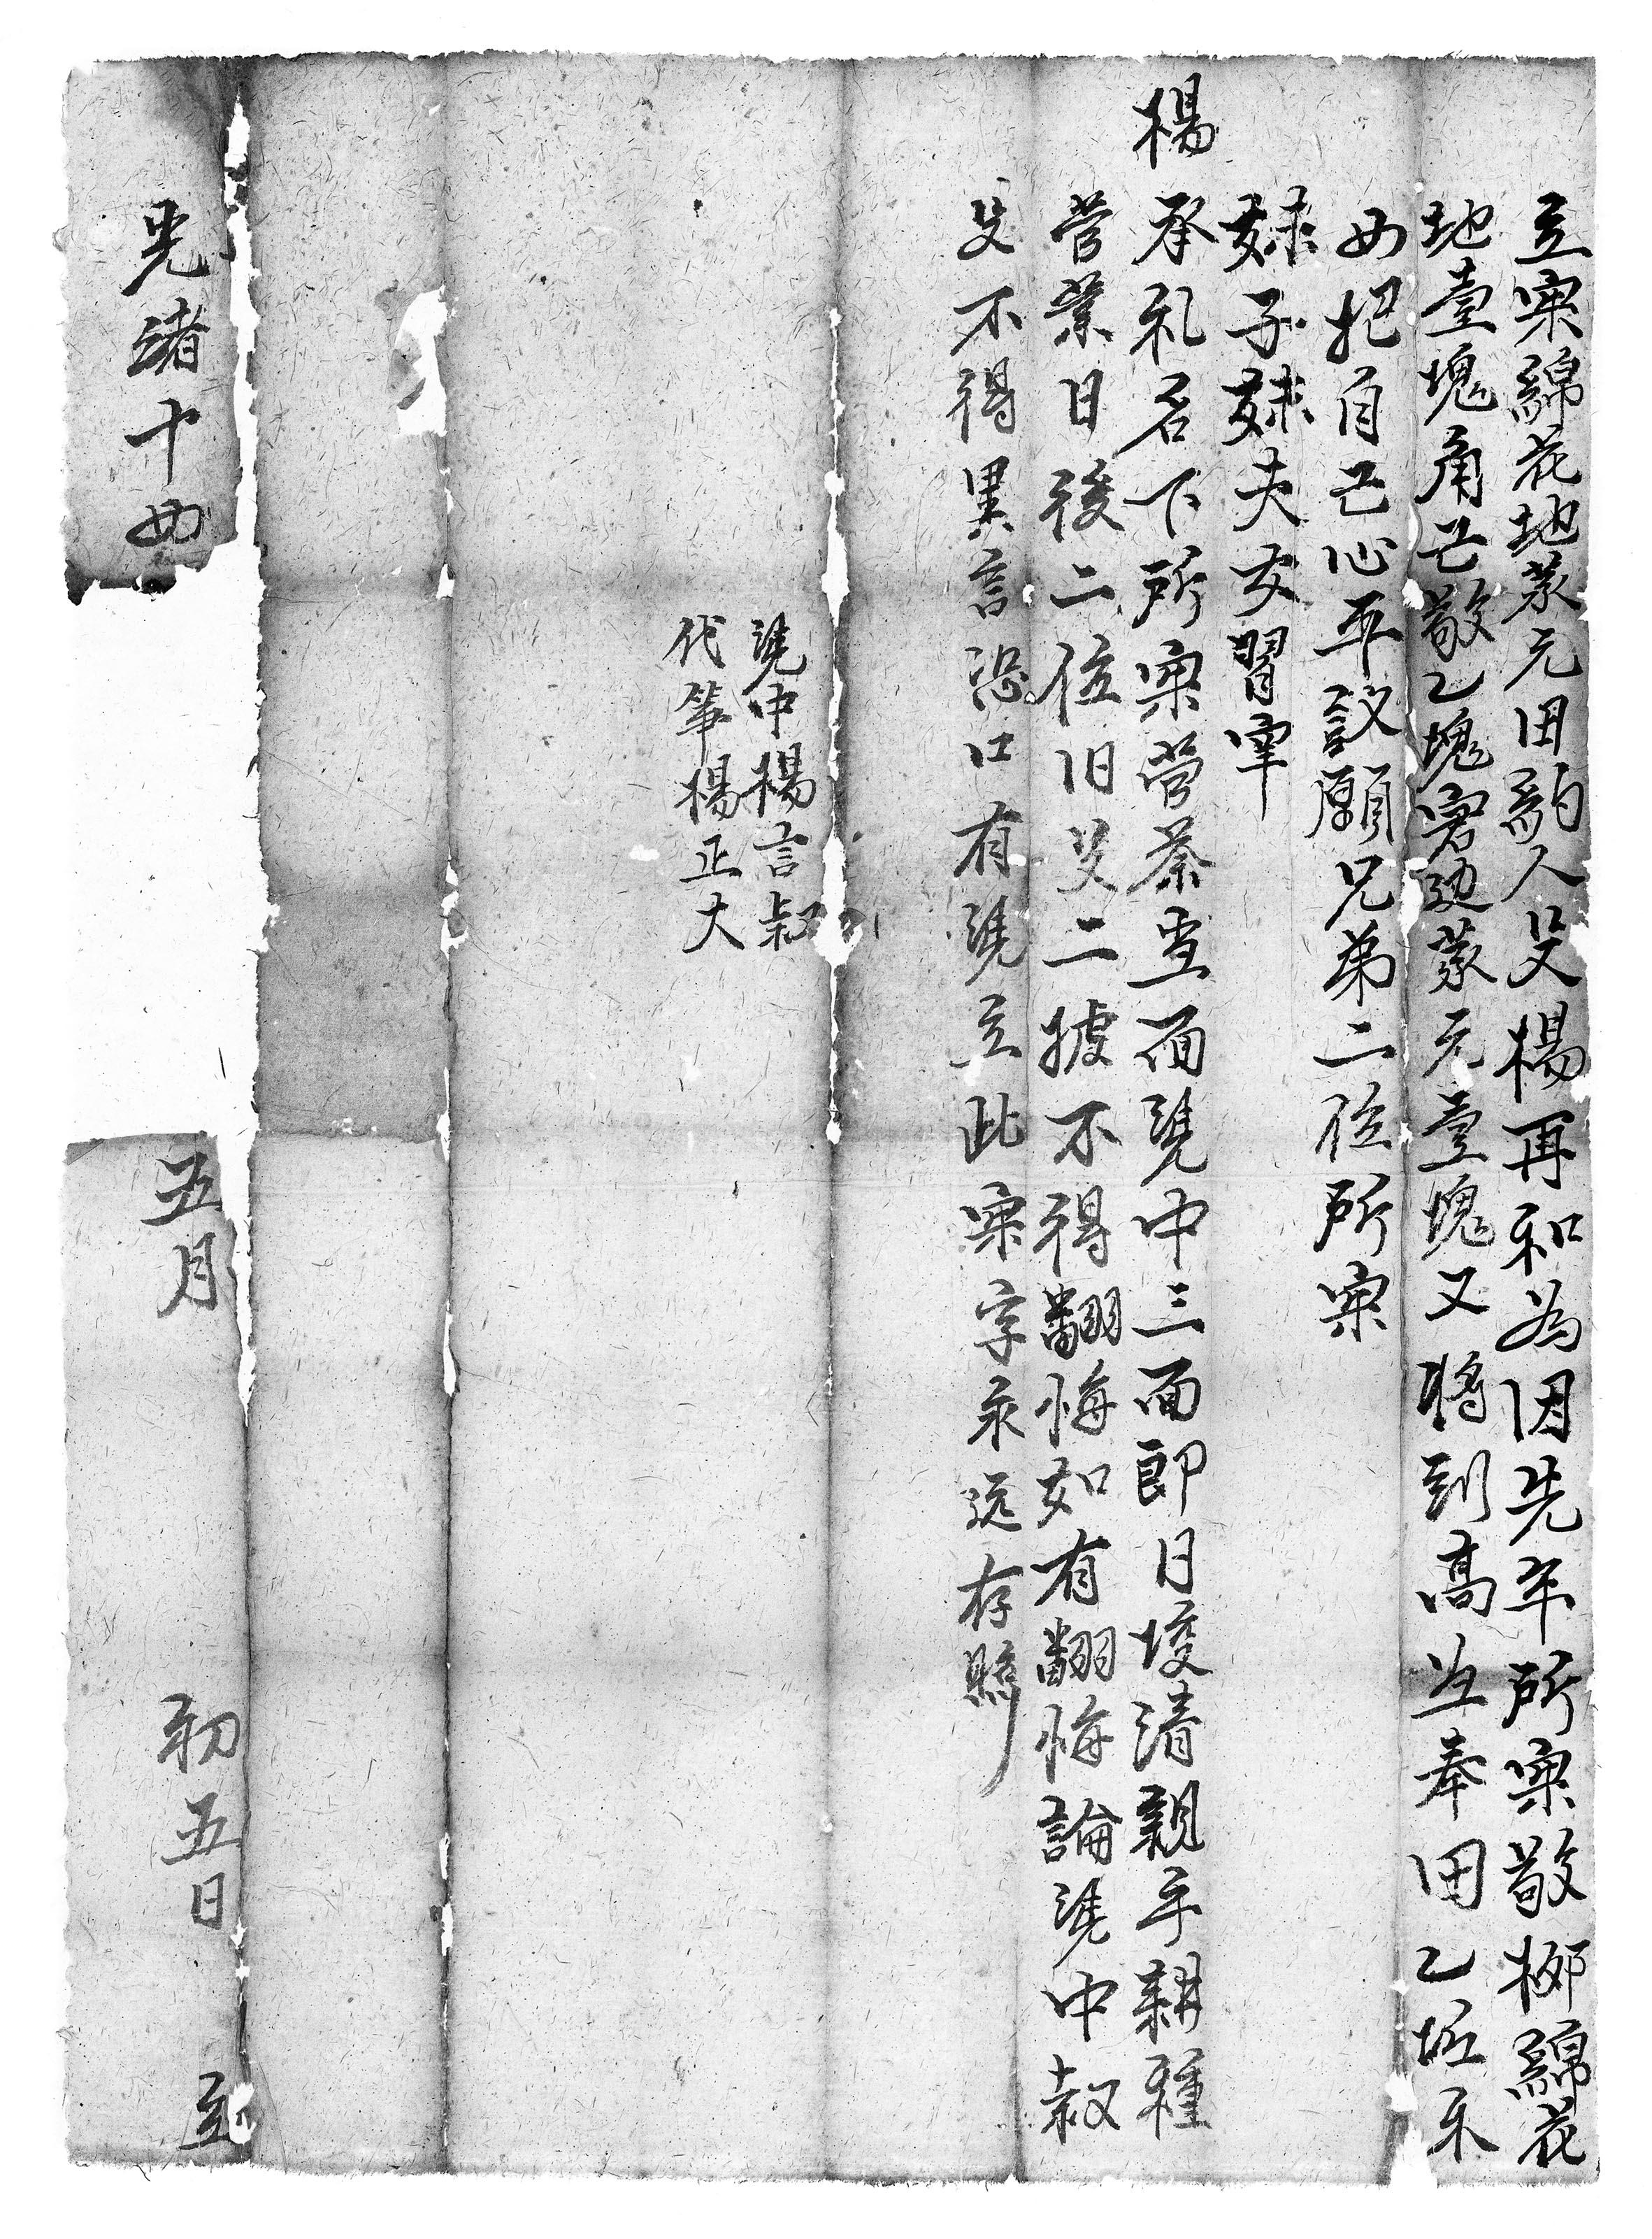 立寀綿花地菜元田約人父楊再和為因先年所寀敬柳綿花
地壹塊角芒敬乙塊寄边菜元壹塊又將到高坵奉田乙坵禾
四把自己心平議願兄弟二位所寀
妹子妹夫安習寧
楊
承礼名下所寀管蔡查而凴中三面即日堎清親手耕種
管業日後二位旧父二據不得翻悔如有翻悔論凴中叔
父不得異言恐口有凴立此寀字永远存照
凴中楊言叔
代筆楊正大
光緒十四 五月 初五日 立